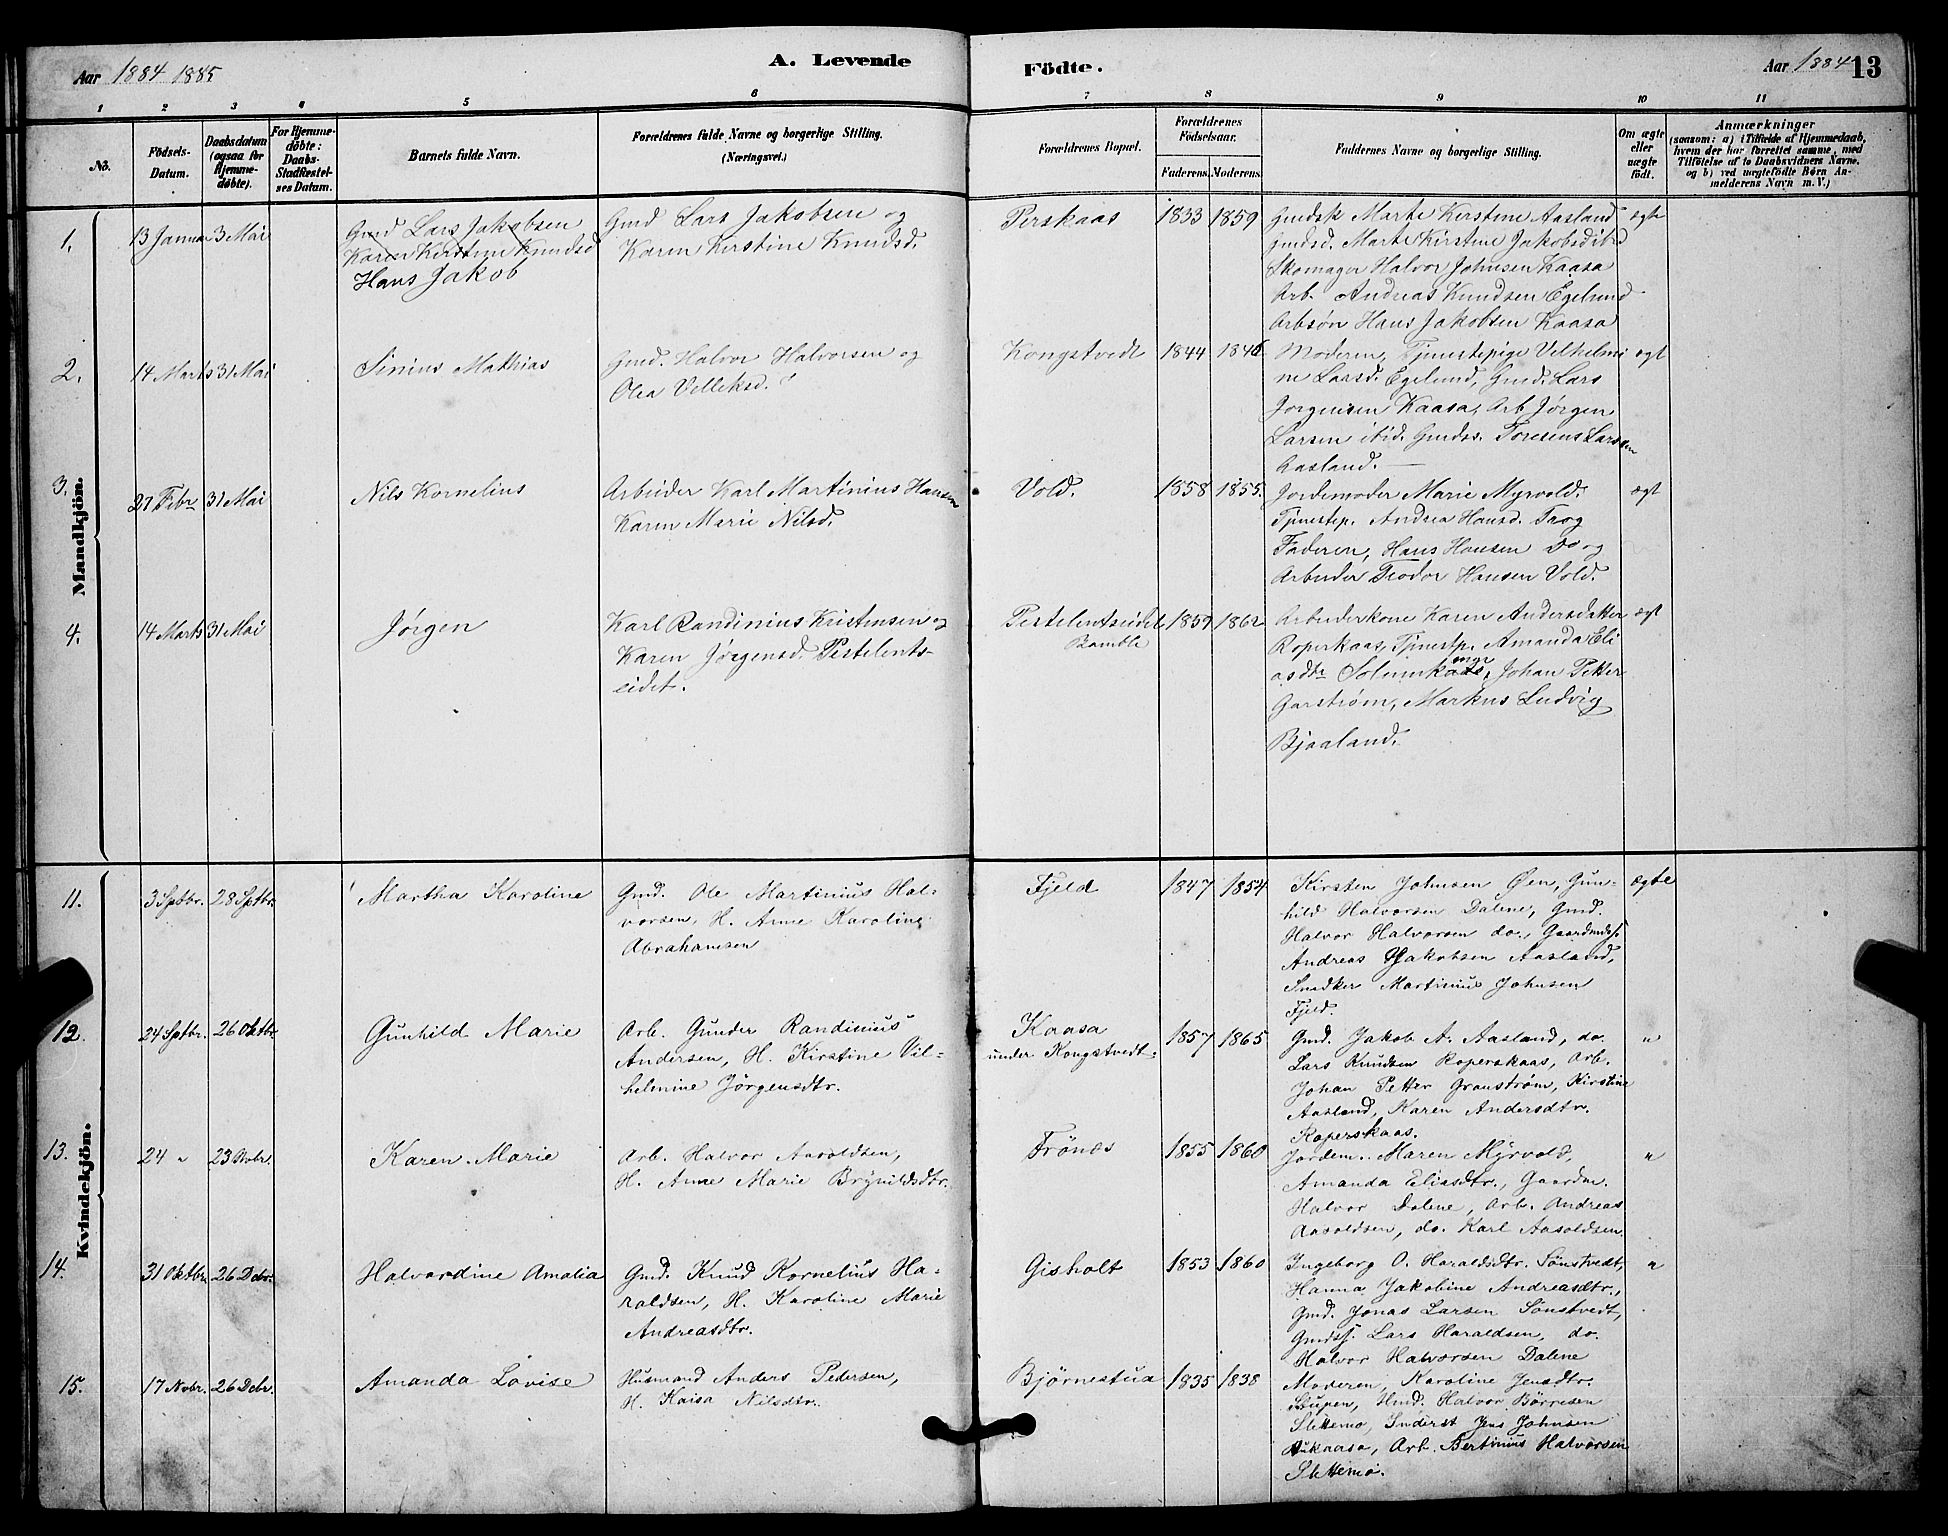 Aar 1884 1885
A. Levende
Födte.
Aar 1884
13
1 2 3 4 5 6 7 8 9 10 11
No.
Födsels-
Datum.
Daabsdatum
(ogsaa for
Hjemme-
døbte).
For Hjemme-
døbte:
Daabs-
Stadfæstel-
ses Datum.
Barnets fulde Navn.
Forældrenes fulde Navne og borgerlige Stilling.
(Næringsvei.)
Forældrenes Bopæl.
Forældrenes
Födselsaar.
Faderens. Moderens.
Faddernes Navne og borgerlige Stilling.
Om ægte
eller
uægte
født.
Anmærkninger
(saasom: a) i Tilfælde af Hjemmedaab,
hvem der har forrettet samme, med
Tilföielse af to Daabsvidners Navne,
og b) ved uægtefödte Børn An-
melderens Navn m. V.)
Mandkjön.
1.
13 Januar
3 Mai
Gmd Lars Jakobsen
Karen Kirstine Knudsd
Hans Jakob
Gmd Lars Jakobsen og
Karen Kirstine Knudsd.
Perskaas
1833 1859
Gmdsk Marte Kirstine Aasland
Gmdsd. Marte Kirstine Jakobsd ibd
Skomager Halvor Johnsen Kaasa
Arb. Andreas Knudsen Egelund
Arbsøn Hans Jakobsen Kaasa
ægte
2.
14 Marts
31 Mai
Sinius Mathias
Gmd. Halvor Halvorsen og
Olea Velleksd.
Kongstvedt
1844 1846
Moderen, Tjenestepige Vilhelmi
ne Larsd. Egelund, Gmd. Lars
Jorgensen Kaasa, Arb Jørgen
Larsen ibid. Gmdss. Toresius Larsen
Aasland.
ægt
3.
27 Febr
31 Mai
Nils Kornelius
Arbeider Karl Martinius Hansen
Karen Marie Nilsd.
Vold.
1858 1855.
Jordemoder Marie Myrvold.
Tjenestep. Andrea Hansd. Trog
Faderen, Hans Hansen do og
Arbeider Teodor Hansen Vold.
ægt
4.
14 Marts
31 Mai
Jörgen
Karl Randinius Kristensen og
Karen Jörgensd. Pestelents-
eidet.
Pestelentseidet
Bamble
1859 1862
Arbeiderkone Karen Andersdatter
Roperkaas, Tjenestp. Amanda Eli
asdtr Solum
myr, Johan Petter
Garstrøm, Markus Ludvig
Bjaaland.
ægt
Kvindekjön.
11.
3 Sptbr.
28 Sptbr.
Martha Karoline
Gmd. Ole Martinius Hal-
vorsen, H. Anne Karoline
Abrahamsen
Fjeld
1847 1854
Kirsten Johnsen Øen, Gun-
hild Halvorsen Dalene, Gmd.
Halvor Halvorsen do., Gaardmdss.
Andreas Jakobsen Aasland,
Snedker Martinius Johnsen
Fjeld.
ægte
12.
24 Sptbr.
26 Oktbr.
Gunhild Marie
Arb. Gunder Randinius
Andersen, H. Kirstine Vil-
helmine Jörgensdtr.
Kaasa
under Kongstvedt.
1857 1865
Gmd. Jakob A. Aasland, do.
Lars Knudsen Roperskaas, Arb.
Johan Petter Granstrøm, Kirstine
Aasland, Karen Andersdtr.
Roperskaas.
"
13.
24 "
23 Novbr.
Karen Marie
Arb. Halvor Aasoldsen,
H. Anne Marie Brynildsdtr.
Trönes
1855 1860
Jordem. Maren Myrvold,
Amanda Eliasdtr., Gaardm.
Halvor Dalene, Arb. Andreas
Aasoldsen, do. Karl Aasoldsen.
"
14.
31 Oktbr.
26 Debr.
Halvardine Amalia
Gmd. Knud Kornelius Ha-
raldsen, H. Karoline Marie
Andreasdtr.
Gisholt
1853 1860
Ingeborg O. Haraldsdtr. Sönstvedt,
Hanna Jakobine Andreasdtr.,
Gmd. Jonas Larsen Sönstvedt,
Gmdss. Lars Haraldsen, do.
Halvor Halvorsen Dalene
"
15.
17 Novbr.
26 Debr.
Amanda Lovise
Husmand Anders Pedersen,
H. Kaisa Nilsdtr.
Bjørnestua
1835 1838
Moderen, Karoline Jensdtr.
Stupen, Hmd. Halvor Börresen
Slettemo, Inderst Jens Johnsen
Aukaasa, Arb. Bertinius Halvorsen
Slettemo.